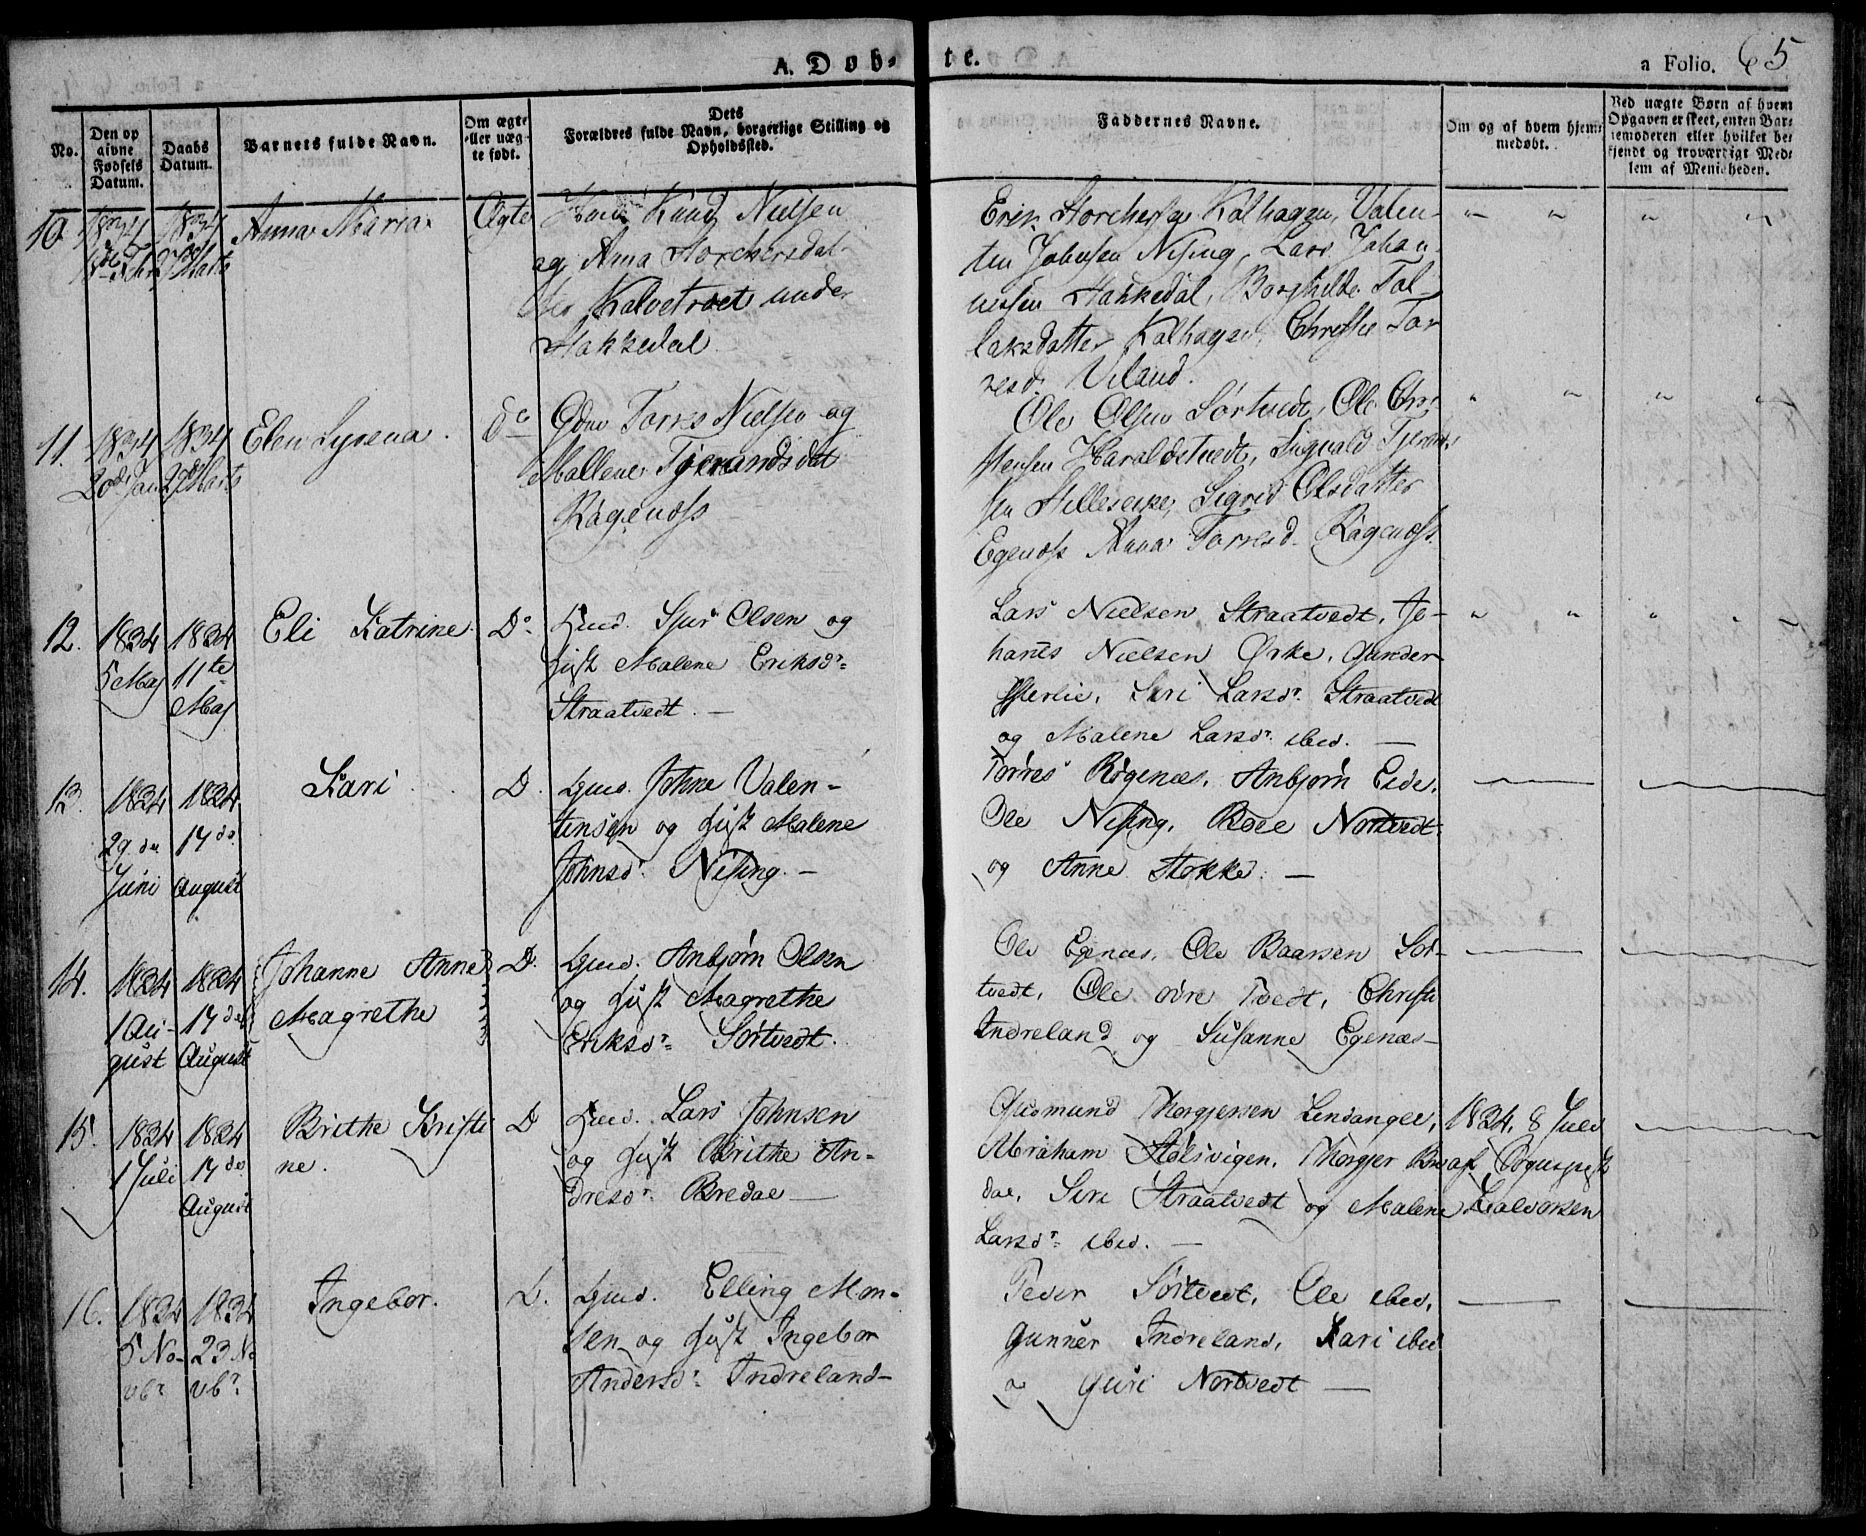 A. Døb-
te.
a Folio. 65
No.
Den op
givne
Fødsels
Datum.
Daabs
Datum.
Barnets fulde Navn.
Om ægte
eller uæg-
te født.
Dets
Forældres fulde Navn, borgerlige Stilling og
Opholdssted.
Faddernes Navne.
Om og af hvem hjem-
medøbt.
Ved uægte Børn af hvem
Opgaven er skeet, enten Bar-
nemoderen eller hvilket be-
kjendt og troværdigt Med-
lem af Menigheden.
10.
1834
1834
27 Marts
Anna Maria
Ægte
Knud Nielsen
og Anna Torchersdat-
ter Kalvetræet under
Hakkedal
Kalhagen, Valen-
tin Johnsen Nising, Lars Johan-
nessen Hakkedal, Borghilde Tol-
laksdatter Kalhagen, Christie Tor
resd. Viland.
" " " "
11.
1834
20de Jan
1834
27 Marts
Elen Lysena.
do
Gdm Torres Nielsen og
Mallene Tjerandsdat
Røgenæs
Ole Olsen Sørtvedt, Ole Chri
stensen Haraldstvedt, Sigvald Tjerand
sen Hilleseike, Sigrid Olsdatter
Egenæs Anna Torresd. Røgenæs.
" " " "
12.
1834
5 Maj
1834
11te
Maj
Eli Katrine.
Do
Gmd. Sjur Olsen og
Hust Malene Eriksdr
Straatvedt. —
Lars Nielsen Straatvedt, Jo-
hanes Nielsen Ørke, Gunder
Østerlie, Siri Larsdr Straatvedt
og Malene Larsdr ibid. —
" " " "
13.
1834
29. de
Juni
1834
17 de
August
Kari.
D.
Gmd. Johne Valen-
tinsen og Hust Malene
Johnsdr. Nising. —
Torres Røgenæs, Anbjørn Eide,
Ole Nising, Roee Nortvedt
og Anne Stokke. —
14.
1834
1 Au-
gust
1834
17 de
August
Johanne Anne
Magrethe
D.
Gmd. Anbjørn Olsen
og Hust Magrethe
Eriksdr Sørtvedt.
Ole Egenæs, Ole Baarsen Sør-
tvedt, Ole øvre Tvedt, Christi
Indreland og Susanne Egenæs —
15.
1834
1 Juli
1834
17 de
August
Brithe Kristi
ne.
D
Gmd. Lars Johnsen
og Hust Brithe An-
dresdr Bredal —
Gudmund Thorgjersen Lindanger,
Abraham Hølsvigen, Thorgjer Bre
dal, Siri Straatvedt og Malene
Larsdr ibid. —
1834, 8 Juli
af
Halvorsen
16.
1834
5 No-
vbr
1834
23 No
vbr.
Ingebor.
D.
Gmd. Elling Mon-
sen og Hust Ingebor
Andersdr Indreland —
Peder Sørtvedt, Ole ibid,
Gunner Indreland, Kari ibid
og Guri Nortvedt —